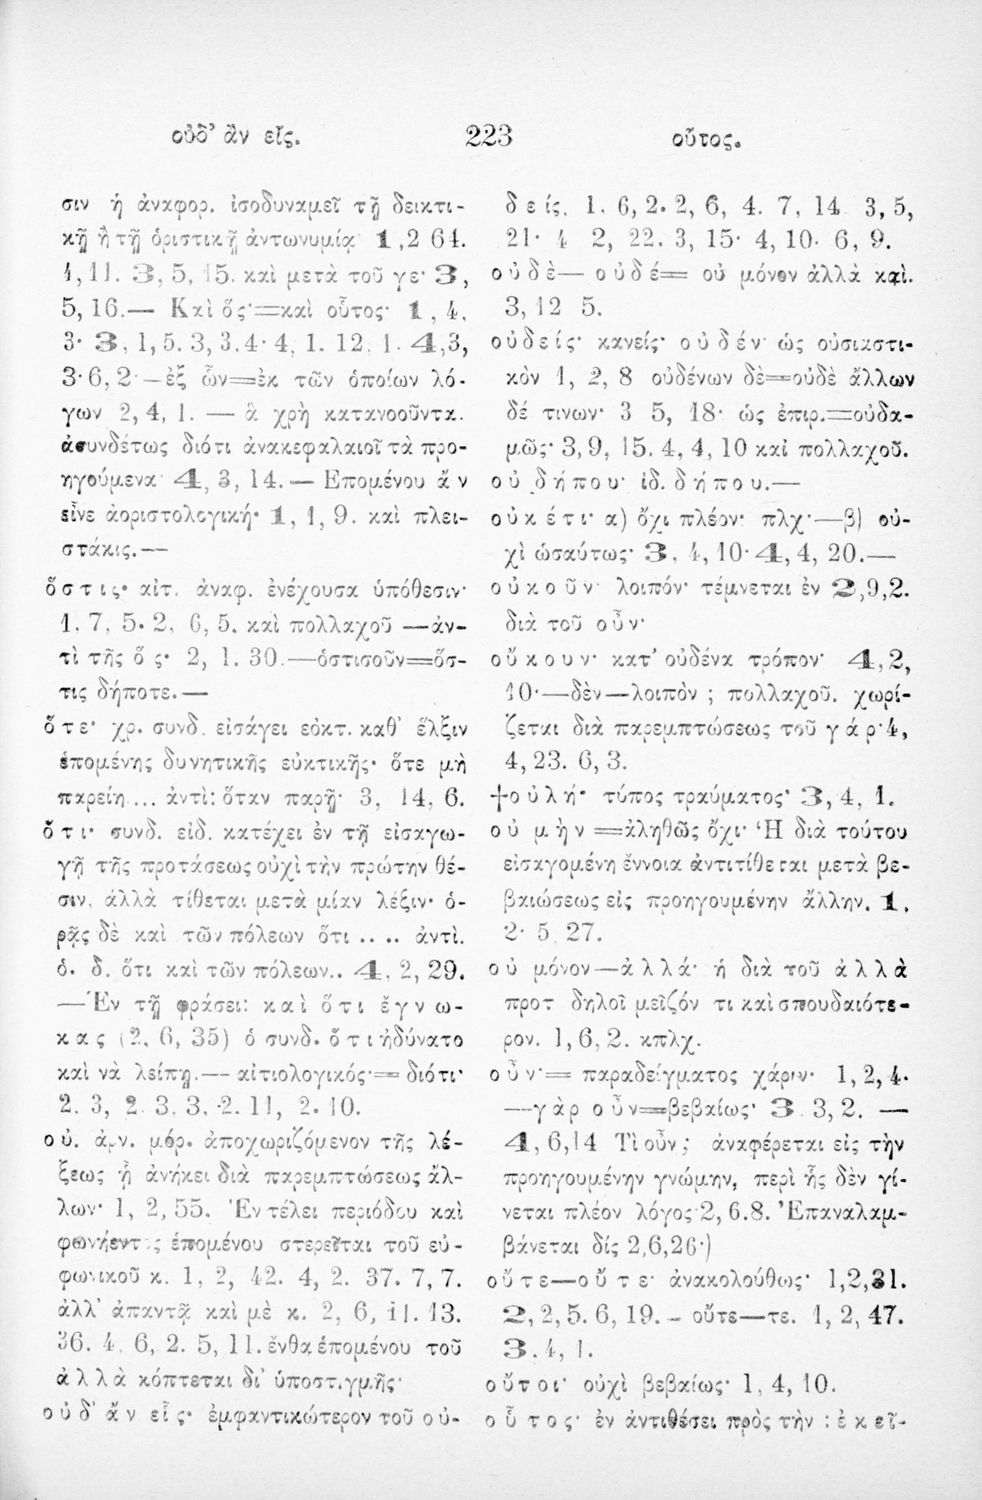 οὐδ’ ἂν εἷς.
223
οὗτος.
σιν ἡ ἀναφορ. ἰσοδυναμεῖ τῇ δεικτι-
κῇ ἢ τῇ ὁριστικῇ ἀντωνυμίᾳ 1,2 64.
4,11. 3, 5, 15. καὶ μετὰ τοῦ γε· 3,
5, 16.— Καὶ ὅς·=καὶ οὗτος· 1, 4,
3· 3, 1, 5. 3, 3. 4· 4, 1. 12, 1. 4,3,
3· 6, 2· —ἐξ ὧν=ἐκ τῶν ὁποίων λό-
γων 2, 4, 1. — ἃ χρὴ κατανοοῦντα.
ἀσυνδέτως διότι ἀνακεφαλαιοῖ τὰ προ-
ηγούμενα 4, 3, 14. — Ἑπομένου ἄ ν
εἶνε ἀοριστολογική· 1, 1, 9. καὶ πλει-
στάκις.—
ὅ σ τ ι ς· αἰτ. ἀναφ. ἐνέχουσα ὑπόθεσιν·
1. 7, 5. 2, 6, 5. καὶ πολλαχοῦ —ἀν-
τὶ τῆς ὅ ς· 2, 1. 30.—ὁστισοῦν=ὅσ-
τις δήποτε.—
ὅ τ ε· χρ. συνδ. εἰσάγει εὐκτ. καθ’ ἕλξιν
ἑπομένης δυνητικῆς εὐκτικῆς· ὅτε μὴ
παρείη ... ἀντὶ: ὅταν παρῇ· 3, 14, 6.
ὅ τ ι· συνδ. εἰδ. κατέχει ἐν τῇ εἰσαγω-
γῇ τῆς προτάσεως οὐχὶ τὴν πρώτην θέ-
σιν, ἀλλὰ τίθεται μετὰ μίαν λέξιν· ὁ-
ρᾷς δὲ καὶ τῶν πόλεων ὅτι .... ἀντὶ.
ὁ. δ. ὅτι καὶ τῶν πόλεων.. 4, 2, 29.
—Ἐν τῇ φράσει: κ α ὶ ὅ τ ι ἔ γ ν ω-
κ α ς (2, 6, 35) ὁ συνδ. ὅ τ ι ἠδύνατο
καὶ νὰ λείπῃ.— αἰτιολογικός·= διότι·
2. 3, 2 3. 3, 2. 11, 2. 10.
ο ὐ. ἀρν. μόρ. ἀποχωριζόμενον τῆς λέ-
ξεως ᾗ ἀνήκει διὰ παρεμπτώσεως ἄλ-
λων· 1, 2, 55. Ἐν τέλει περιόδου καὶ
φωνήεντος ἑπομένου στερεῖται τοῦ εὐ-
φωνικοῦ κ. 1, 2, 42. 4, 2. 37. 7, 7.
ἀλλ’ ἀπαντᾷ καὶ μὲ κ. 2, 6, 11. 13.
36. 4, 6, 2. 5, 11. ἔνθα ἑπομένου τοῦ
ἀ λ λ ὰ κόπτεται δι’ ὑποστιγμῆς·
ο ὐ δ’ ἂ ν ε ἷ ς· ἐμφαντικώτερον τοῦ ο ὐ-
δ ε ίς. 1. 6, 2. 2, 6, 4. 7, 14 3, 5,
21· 4 2, 22. 3, 15· 4, 10. 6, 9.
ο ὐ δ ὲ— ο ὐ δ έ= οὐ μόνον ἀλλὰ καὶ.
3, 12 5.
ο ὐ δ ε ί ς· κανείς· ο ὐ δ έ ν· ὡς οὐσιαστι-
κὸν 1, 2, 8 οὐδένων δὲ=οὐδὲ ἄλλων
δέ τινων· 3 5, 18· ὡς ἐπιρ.=οὐδα-
μῶς· 3, 9, 15. 4, 4, 10 καὶ πολλαχοῦ.
ο ὐ δ ή π ο υ· ἰδ. δ ή π ο υ.—
ο ὐ κ έ τ ι· α) ὄχι πλέον· πλχ·—β) οὐ-
χὶ ὡσαύτως· 3, 4, 10· 4, 4, 20.—
ο ὐ κ ο ῦ ν· λοιπόν· τέμνεται ἐν 2,9,2.
διὰ τοῦ ο ὖ ν·
ο ὔ κ ο υ ν· κατ’ οὐδένα τρόπον· 4, 2,
10·—δὲν—λοιπὸν ; πολλαχοῦ. χωρί-
ζεται διὰ παρεμπτώσεως τοῦ γ ά ρ· 4,
4, 23. 6, 3.
†ο ὐ λ ή· τύπος τραύματος· 3, 4, 1.
ο ὐ μ ὴ ν =ἀληθῶς ὄχι· Ἡ διὰ τούτου
εἰσαγομένη ἔννοια ἀντιτίθεται μετὰ βε-
βαιώσεως εἰς προηγουμένην ἄλλην. 1,
2· 5, 27.
ο ὐ μόνον—ἀ λ λ ά· ἡ διὰ τοῦ ἀ λ λ ὰ
προτ δηλοῖ μεῖζόν τι καὶ σπουδαιότε-
ρον. 1, 6, 2. κπλχ.
ο ὖ ν·= παραδείγματος χάριν· 1, 2, 4.
—γὰρ ο ὖ ν=βεβαίως· 3 3, 2. —
4, 6, 14 Τὶ οὖν ; ἀναφέρεται εἰς τὴν
προηγουμένην γνώμην, περὶ ἧς δὲν γί-
νεται πλέον λόγος 2, 6.8. Ἐπαναλαμ-
βάνεται δίς 2,6,26·)
ο ὔ τ ε—ο ὔ τ ε· ἀνακολούθως· 1,2,31.
2, 2, 5. 6, 19. - οὔτε—τε. 1, 2, 47.
3. 4, 1.
ο ὔ τ ο ι· οὐχὶ βεβαίως· 1, 4, 10.
ο ὗ τ ο ς· ἐν ἀντιθέσει πρὸς τὴν : ἐ κ εῖ-